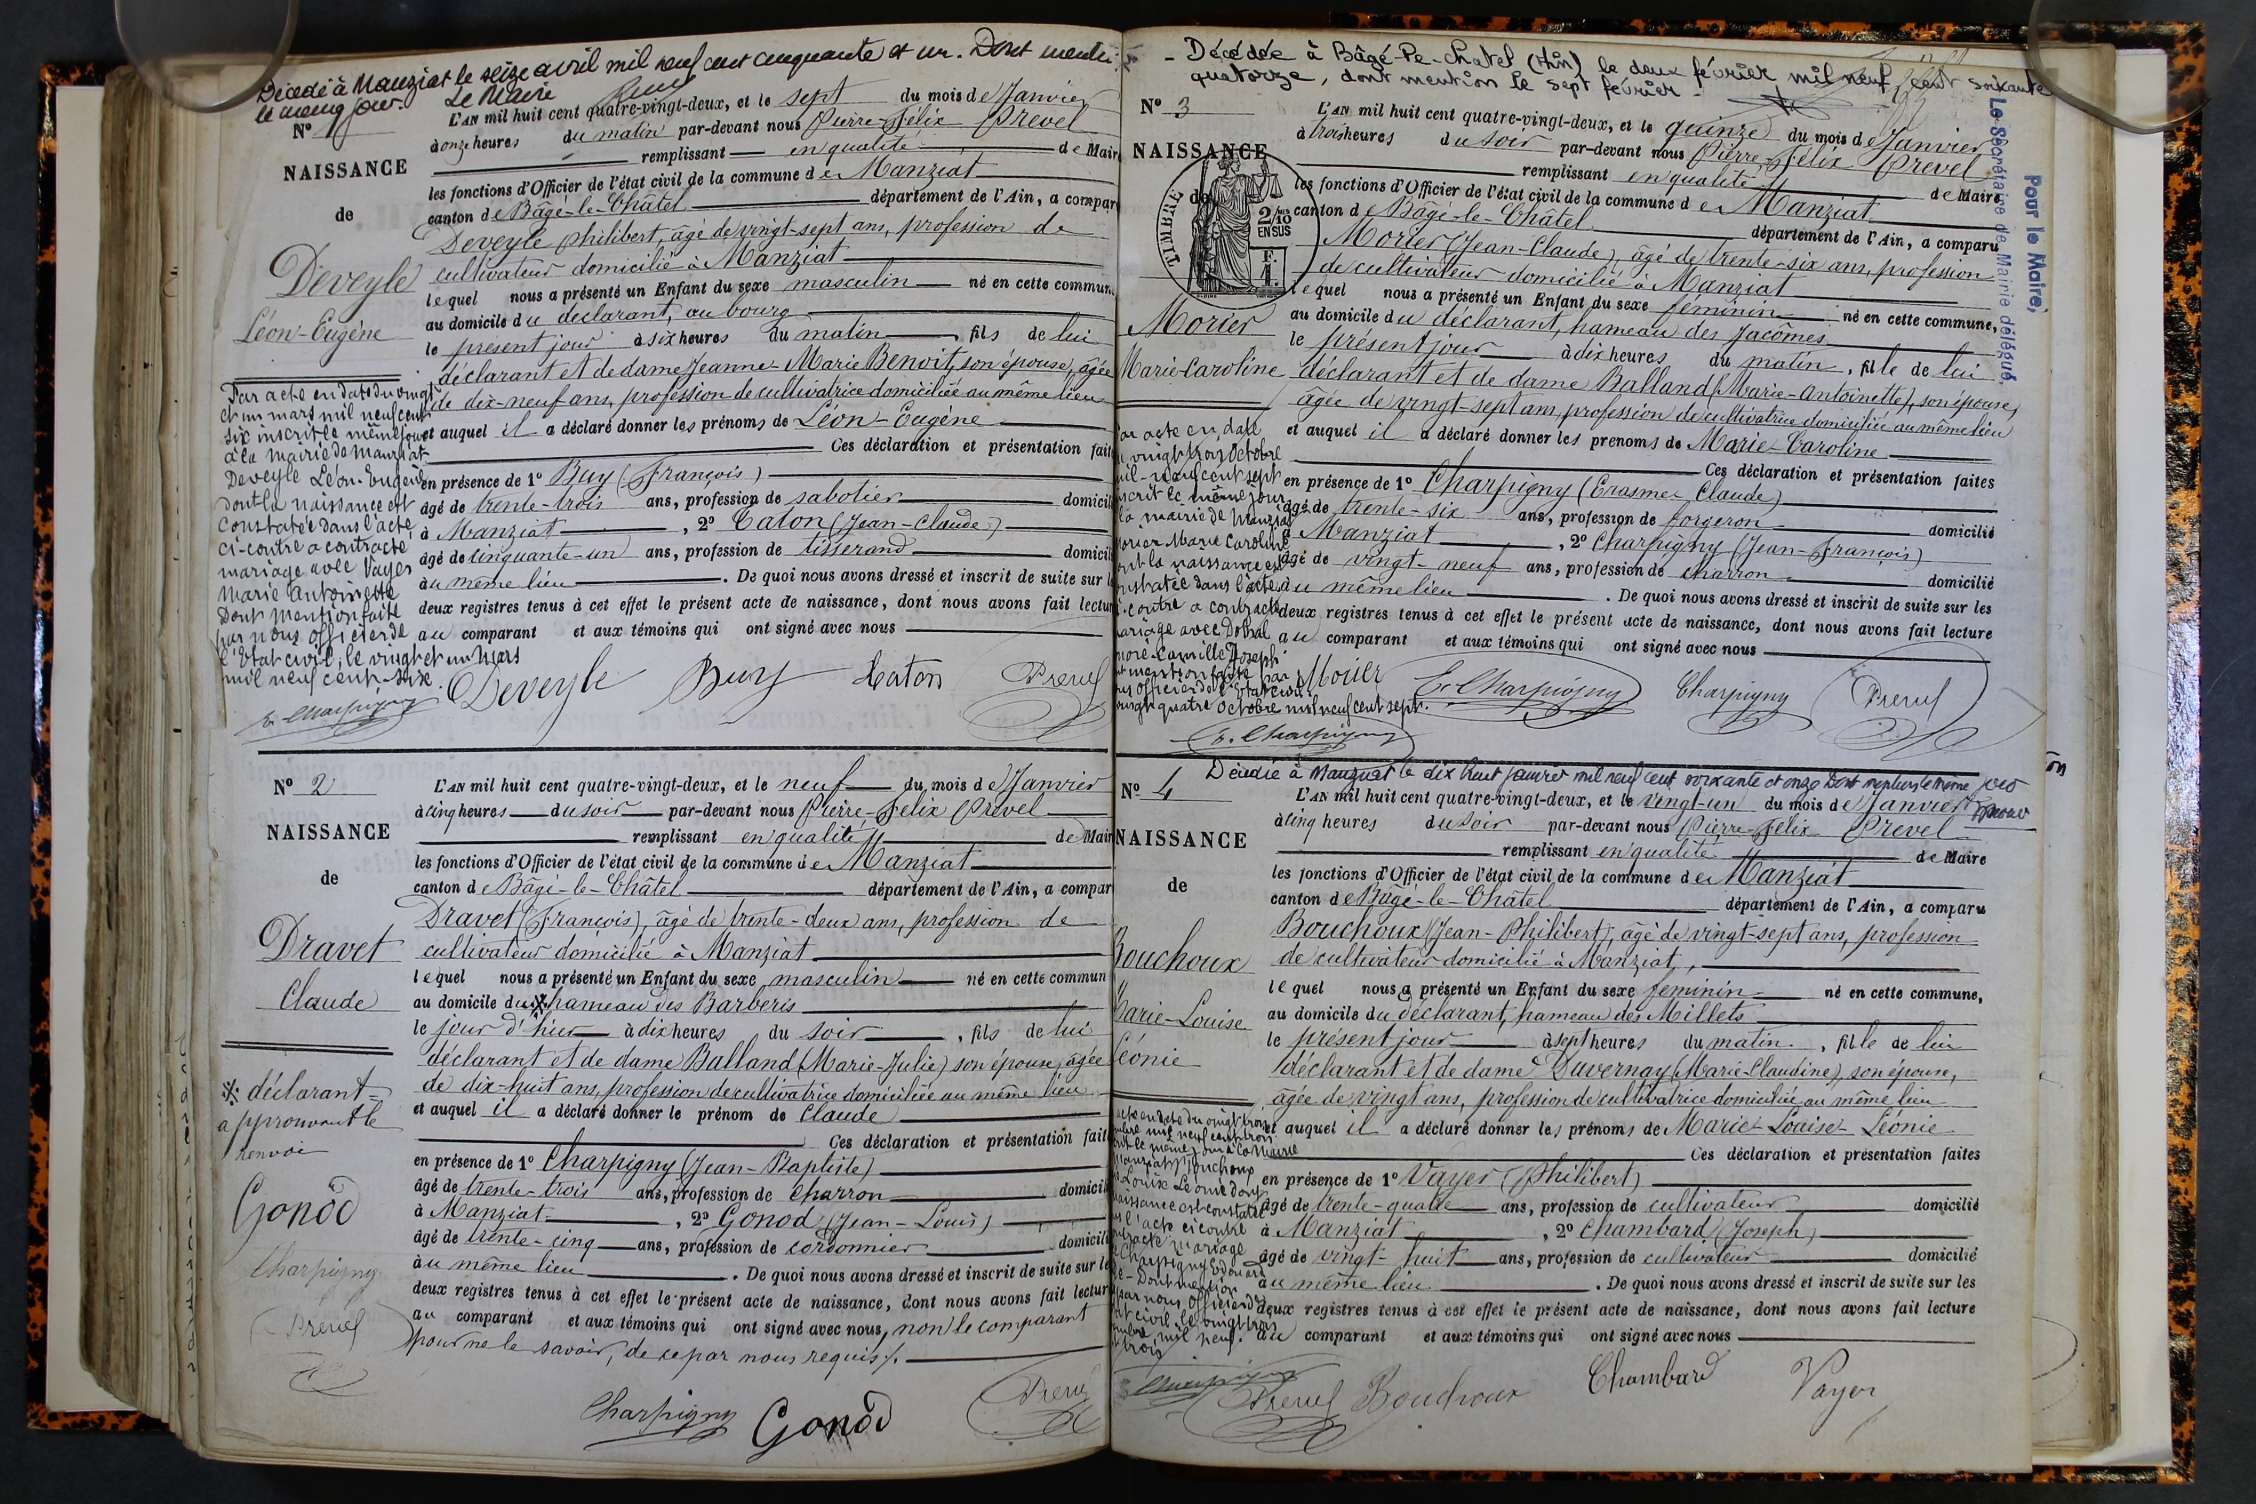 Décédé à Manziat le seize avril mil neuf cent cinquante et un. Dont mention
le même jour. Le Maire
Nº 1
NAISSANCE
de
Deveyle
Léon-Eugène
L'AN mil huit cent quatre-vingt-deux, et le sept du mois de Janvier
à onze heures du matin par-devant nous Pierre-Félix Prevel
remplissant en qualité de Maire
les fonctions d'Officier de l'état civil de la commune de Manziat
canton de Bâgé-le-Châtel département de l'Ain, a comparu
Deveyle Philibert, âgé de vingt-sept ans, profession de
cultivateur domicilié à Manziat
lequel nous a présenté un Enfant du sexe masculin né en cette commun
au domicile du déclarant, au bourg
le présent jour à six heures du matin, fils de lui
déclarant et de dame Jeanne-Marie Benoit, son épouse, âgée
de dix-neuf ans, profession de cultivatrice domiciliée au même lieu
et auquel il a déclaré donner les prénoms de Léon-Eugène
Ces déclaration et présentation fait
en présence de 1º Buy (François)
âgé de trente-trois ans, profession de sabotier domicil
à Manziat, 2º Caton (Jean-Claude)
âgé de cinquante-un ans, profession de tisserand domicil
au même lieu. De quoi nous avons dressé et inscrit de suite sur l
deux registres tenus à cet effet le présent acte de naissance, dont nous avons fait lectur
au comparant et aux témoins qui ont signé avec nous
Deveyle Buy Caton Prevel
Par acte en date du vingt
et un mars mil neuf cent
six inscrit le même jour
à la mairie de Manziat
Deveyle Léon-Eugène
dont la naissance est
constatée dans l'acte
ci-contre a contracté
mariage avec Vayer
Marie Antoinette
Dont mention faite
par nous officier de
l'Etat civil, le vingt et un Mars
mil neuf cent-six
E. Charpigny
Nº 2
NAISSANCE
de
Dravet
Claude
L'AN mil huit cent quatre-vingt-deux, et le neuf du mois de Janvier
à cinq heures du soir par-devant nous Pierre-Félix Prevel
remplissant en qualité de Mair
les fonctions d'Officier de l'état civil de la commune de Manziat
canton de Bâgé-le-Châtel département de l'Ain, a compar
Dravet (François), âgé de trente-deux ans, profession de
cultivateur domicilié à Manziat
lequel nous a présenté un Enfant du sexe masculin né en cette commun
au domicile du ※ hameau des Barberis
le jour d'hier à dix heures du soir, fils de lui
déclarant et de dame Balland (Marie-Julie) son épouse, âgée
de dix-huit ans, profession de cultivatrice domiciliée au même lieu
et auquel il a déclaré donner le prénom de Claude
Ces déclaration et présentation fait
en présence de 1º Charpigny (Jean-Baptiste)
âgé de trente-trois ans, profession de charron domicil
à Manziat, 2º Gonod (Jean-Louis)
âgé de trente-cinq ans, profession de cordonnier domicili
au même lieu. De quoi nous avons dressé et inscrit de suite sur le
deux registres tenus à cet effet le présent acte de naissance, dont nous avons fait lectur
au comparant et aux témoins qui ont signé avec nous, non le comparant
pour ne le savoir, de ce par nous requis.
Charpigny Gonod Prevel
※ déclarant =
approuvant le
renvoi
Gonod
Charpigny
Prevel
- Décédée à Bâgé-le-Chatel (Ain) le deux février mil neuf cent soixante
quatorze, dont mention le sept février -
Pour le Maire,
Le Secrétaire de Mairie délégué,
Nº 3
NAISSANCE
de
TIMBRE
2/10 EN SUS
F. 1.
Morier
Marie-Caroline
L'AN mil huit cent quatre-vingt-deux, et le quinze du mois de Janvier
à trois heures du soir par-devant nous Pierre-Félix Prevel
remplissant en qualité de Maire
les fonctions d'Officier de l'état civil de la commune de Manziat
canton de Bâgé-le-Châtel département de l'Ain, a comparu
Morier (Jean-Claude), âgé de trente-six ans, profession
de cultivateur domicilié à Manziat
lequel nous a présenté un Enfant du sexe féminin né en cette commune,
au domicile du déclarant, hameau des Jacômes
le présent jour à dix heures du matin, fille de lui
déclarant et de dame Balland (Marie-Antoinette), son épouse,
âgée de vingt-sept ans, profession de cultivatrice domiciliée au même lieu
et auquel il a déclaré donner les prenoms de Marie-Caroline
Ces déclaration et présentation faites
en présence de 1º Charpigny (Erasme Claude)
âgé de trente-six ans, profession de forgeron domicilié
à Manziat, 2º Charpigny (Jean-François)
âgé de vingt-neuf ans, profession de charron domicilié
au même lieu. De quoi nous avons dressé et inscrit de suite sur les
deux registres tenus à cet effet le présent acte de naissance, dont nous avons fait lecture
au comparant et aux témoins qui ont signé avec nous
Morier E. Charpigny Charpigny Prevel
ar acte en date
vingt trois Octobre
mil-neuf cent sept
nscrit le même jour
la mairie de Manziat
orier Marie Caroline
ont la naissance est
nstatée dans l'acte
-contre a contracté
ariage avec Dobral
noré-Camille Joseph
nt mention faite par
us officier de l'Etat civil
vingt quatre Octobre mil neuf cent sept.
E. Charpigny
Nº 4
Décédée à Manziat le dix huit janvier mil neuf cent soixante et onze Dont mention le même jour
NAISSANCE
de
Bouchoux
Marie-Louise
Léonie
L'AN mil huit cent quatre-vingt-deux, et le vingt-un du mois de Janvier
à cinq heures du soir par-devant nous Pierre-Félix Prevel
remplissant en qualité de Maire
les fonctions d'Officier de l'état civil de la commune de Manziat
canton de Bâgé-le-Châtel département de l'Ain, a comparu
Bouchoux (Jean-Philibert), âgé de vingt-sept ans, profession
de cultivateur domicilié à Manziat,
lequel nous a présenté un Enfant du sexe féminin né en cette commune,
au domicile du déclarant, hameau des Millets
le présent jour à sept heures du matin, fille de lui
déclarant et de dame Duvernay (Marie-Claudine), son épouse,
âgée de vingt ans, profession de cultivatrice domiciliée au même lieu
et auquel il a déclaré donner les prénoms de Marie-Louise-Léonie
Ces déclaration et présentation faites
en présence de 1º Vayer (Philibert)
âgé de trente-quatre ans, profession de cultivateur domicilié
à Manziat, 2º Chambard (Joseph)
âgé de vingt-huit ans, profession de cultivateur domicilié
au même lieu. De quoi nous avons dressé et inscrit de suite sur les
deux registres tenus à cet effet le présent acte de naissance, dont nous avons fait lecture
au comparant et aux témoins qui ont signé avec nous
Prevel Bouchoux Chambard Vayer
acte en date du vingt trois
mbre mil neuf cent trois
it le même jour à la Mairie
Manziat Bouchoux
Louise Léonie dont
naissance est constatée
l'acte ci contre
ntracté mariage
Charpigny Edouard
- Dont mention
par nous, Officier de
at civil, le vingt trois
mbre mil neuf
trois